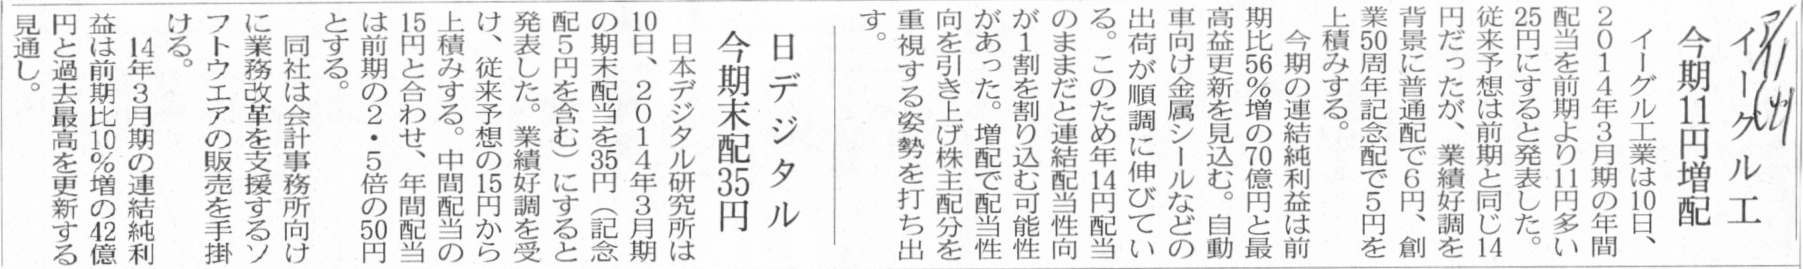 イーグル工
今期11円増配
イーグル工業は10日、
2014年3月期の年間
配当を前期より11円多い
25円にすると発表した。
従来予想は前期と同じ14
円だったが、業績好調を
背景に普通配で6円、創
業50周年記念配で5円を
上積みする。
今期の連結純利益は前
期比56%増の70億円と最
高益更新を見込む。自動
車向け金属シールなどの
出荷が順調に伸びてい
る。このため年14円配当
のままだと連結配当性向
が1割を割り込む可能性
があった。増配で配当性
向を引き上げ株主配分を
重視する姿勢を打ち出
す。
日デジタル
今期末配35円
日本デジタル研究所は
10日、2014年3月期
の期末配当を35円(記念
配5円を含む)にすると
発表した。業績好調を受
け、従来予想の15円から
上積みする。中間配当の
15円と合わせ、年間配当
は前期の2・5倍の50円
とする。
同社は会計事務所向け
に業務改革を支援するソ
フトウエアの販売を手掛
ける。
14年3月期の連結純利
益は前期比10%増の42億
円と過去最高を更新する
見通し。